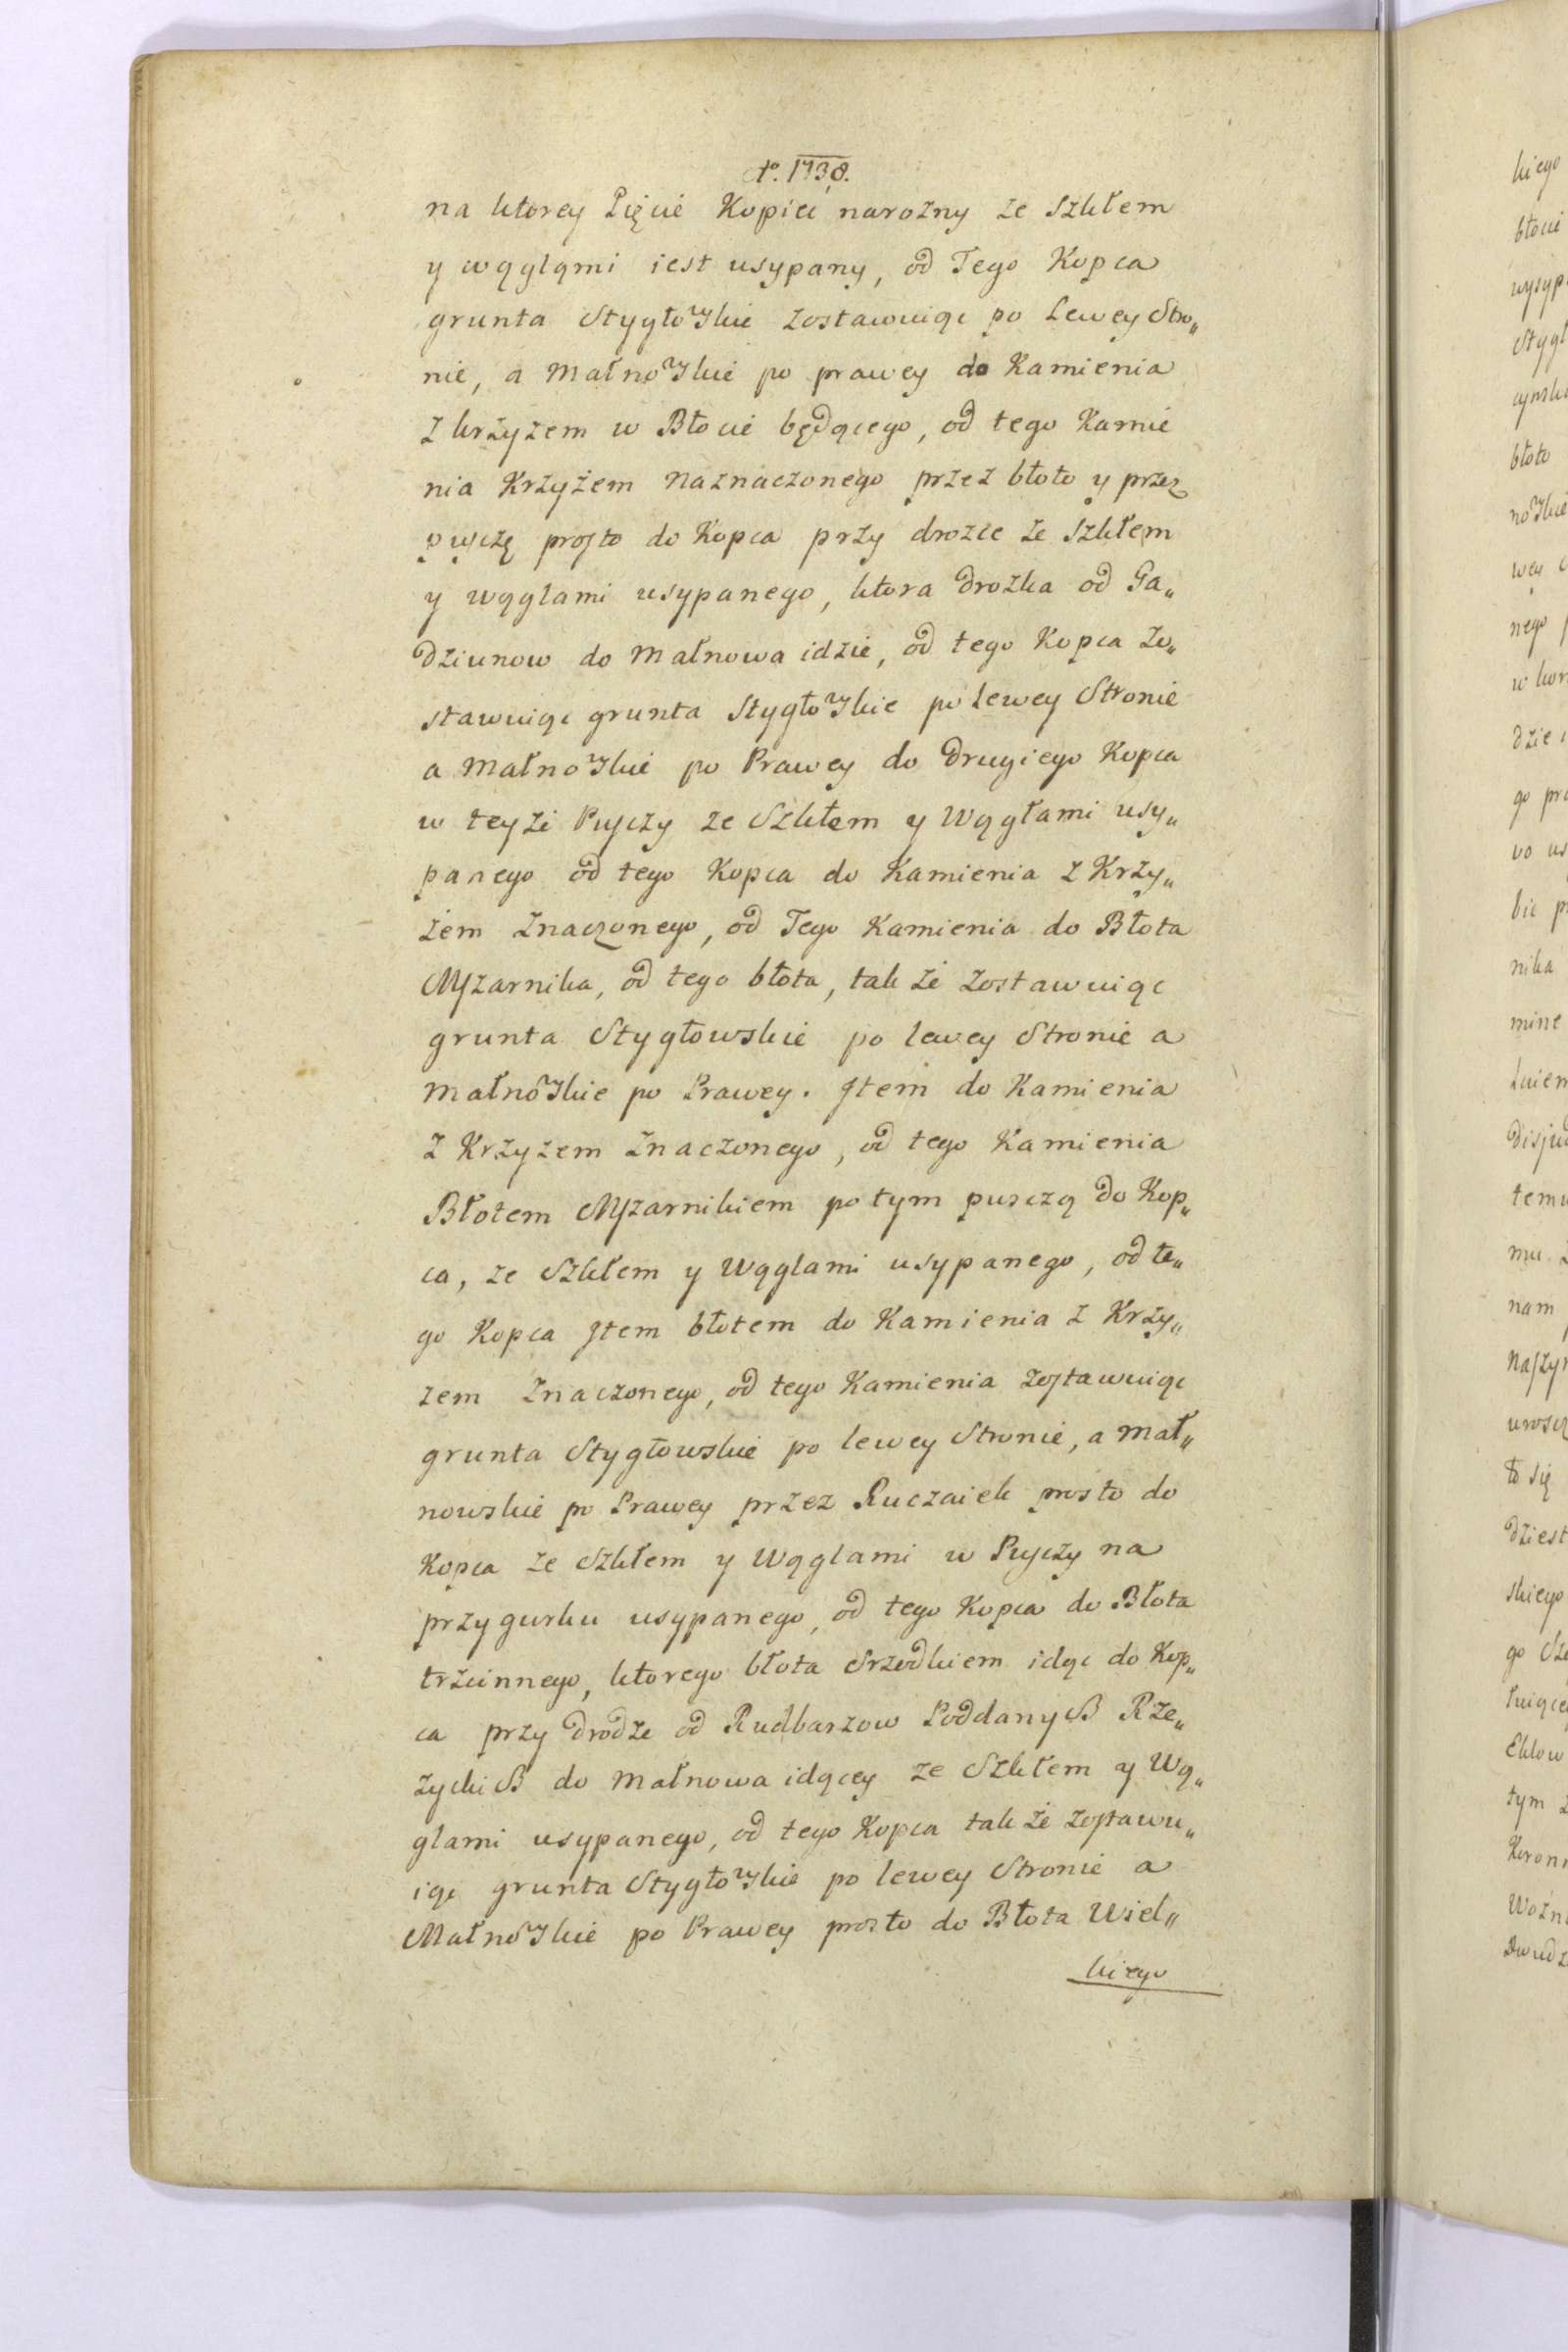 Ao. 1738.
na ktorey Pięcie Kopiec narozny ze Szkłem
y wąglami iest usypany, od Tego Kopca
grunta Stygłowskie zostawuiąc po Lewey Stro„
nie, a Małnowskie po prawey do Kamienia
z krzyzem w Błocie będącego, od tego Kamie
nia Krzyżem naznaczonego przez błoto y przez
puszczę prosto do Kopca przy drozce ze Szkłem
y wąglami usypanego, ktora drozka od Ga„
dziunow do Małnowa idzie, od tego Kopca zo„
stawuiąc grunta Stygłowskie po Lewey Stronie
a Małnowskie po Prawey do drugiego Kopca
w teyże Puszczy ze Szkłem y Wągłami usy„
panego od tego Kopca do Kamienia z Krzy„
żem znaczonego, od Tego Kamienia do Błota
Mszarnika, od tego błota, tak że zostawuiąc
grunta Stygłowskie po lewey Stronie a
Małnowskie po Prawey. Item do Kamienia
z Krzyzem znaczonego, od tego Kamienia
Błotem Mszarnikiem po tym pusczą do Kop„
ca, ze Szkłem y Wąglami usypanego, od te„
go Kopca Item błotem do Kamienia z Krzy„
zem znaczonego, od tego Kamienia zostawuiąc
grunta Stygłowskie po lewey Stronie, a Mał„
nowskie po Prawey przez Ruczaiek prosto do
Kopca ze Szkłem y Wąglami w Puszczy na
przygurku usypanego, od tego Kopca do Błota
trzcinnego, ktorego błota Srzodkiem idąc do Kop„
ca przy drodze od Rudbarzow Poddanych Rze„
zyckich do Małnowa idącey ze Szkłem y Wą„
glami usypanego, od tego Kopca tak że zostawu„
iąc grunta Stygłowskie po lewey Stronie a
Małnowskie po Prawey prosto do Błota Wiel„
kiego